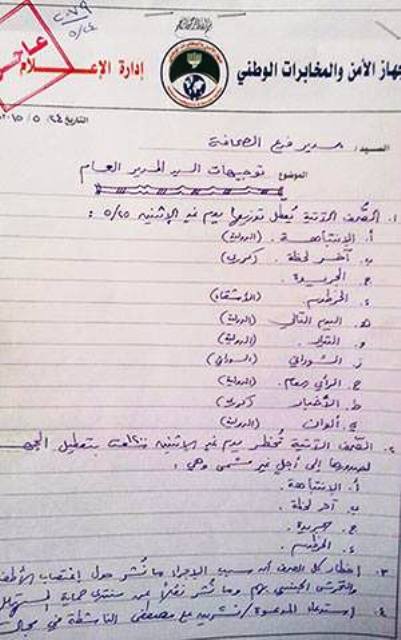 عاجل
٢٠٧٩
٥/٢٤
جهاز الأمن والمخابرات الوطني
إدارة الإعـــلام
التاريخ ٢٤ / ٥ / ٢٠١٥
السيد/ مدير فرع الصحافة
الموضوع توجيهات السيد المدير العام
١. الصحف الآتية يُعطل توزيعها يوم غدٍ الإثنين ٥/٢٥ :
أ. الإنتباهـــة . (الدولية)
ب. آخـر لحظة .
ج. الجريـدة .
د. الخرطوم (الأشقاء)
هـ. اليوم التالي (الدولية)
و. التيار. (الدولية)
ز. السوداني (السوداني)
ح. الرأي العام. (الدولية)
ط. الأخبار
ي. ألوان (الدولية)
٢. الصحف الآتية تُخطر يوم غدٍ الإثنين بتعطيل
صدورها إلى أجلٍ غير مسمى وهي :
أ. الإنتباهة.
ب. آخر لحظة.
ج. جريدة.
د. الخرطوم.
٣. إخطار كل الصحف أن سبب الإجراء ما نُشر حول إغتصاب الأطفال
والتحرش الجنسي بهم وما نُشر نقلاً عن منتدى حماية المستهلك
٤. إستدعاء المدعوة/ نسرين علي مصطفى الناشطة في مجال